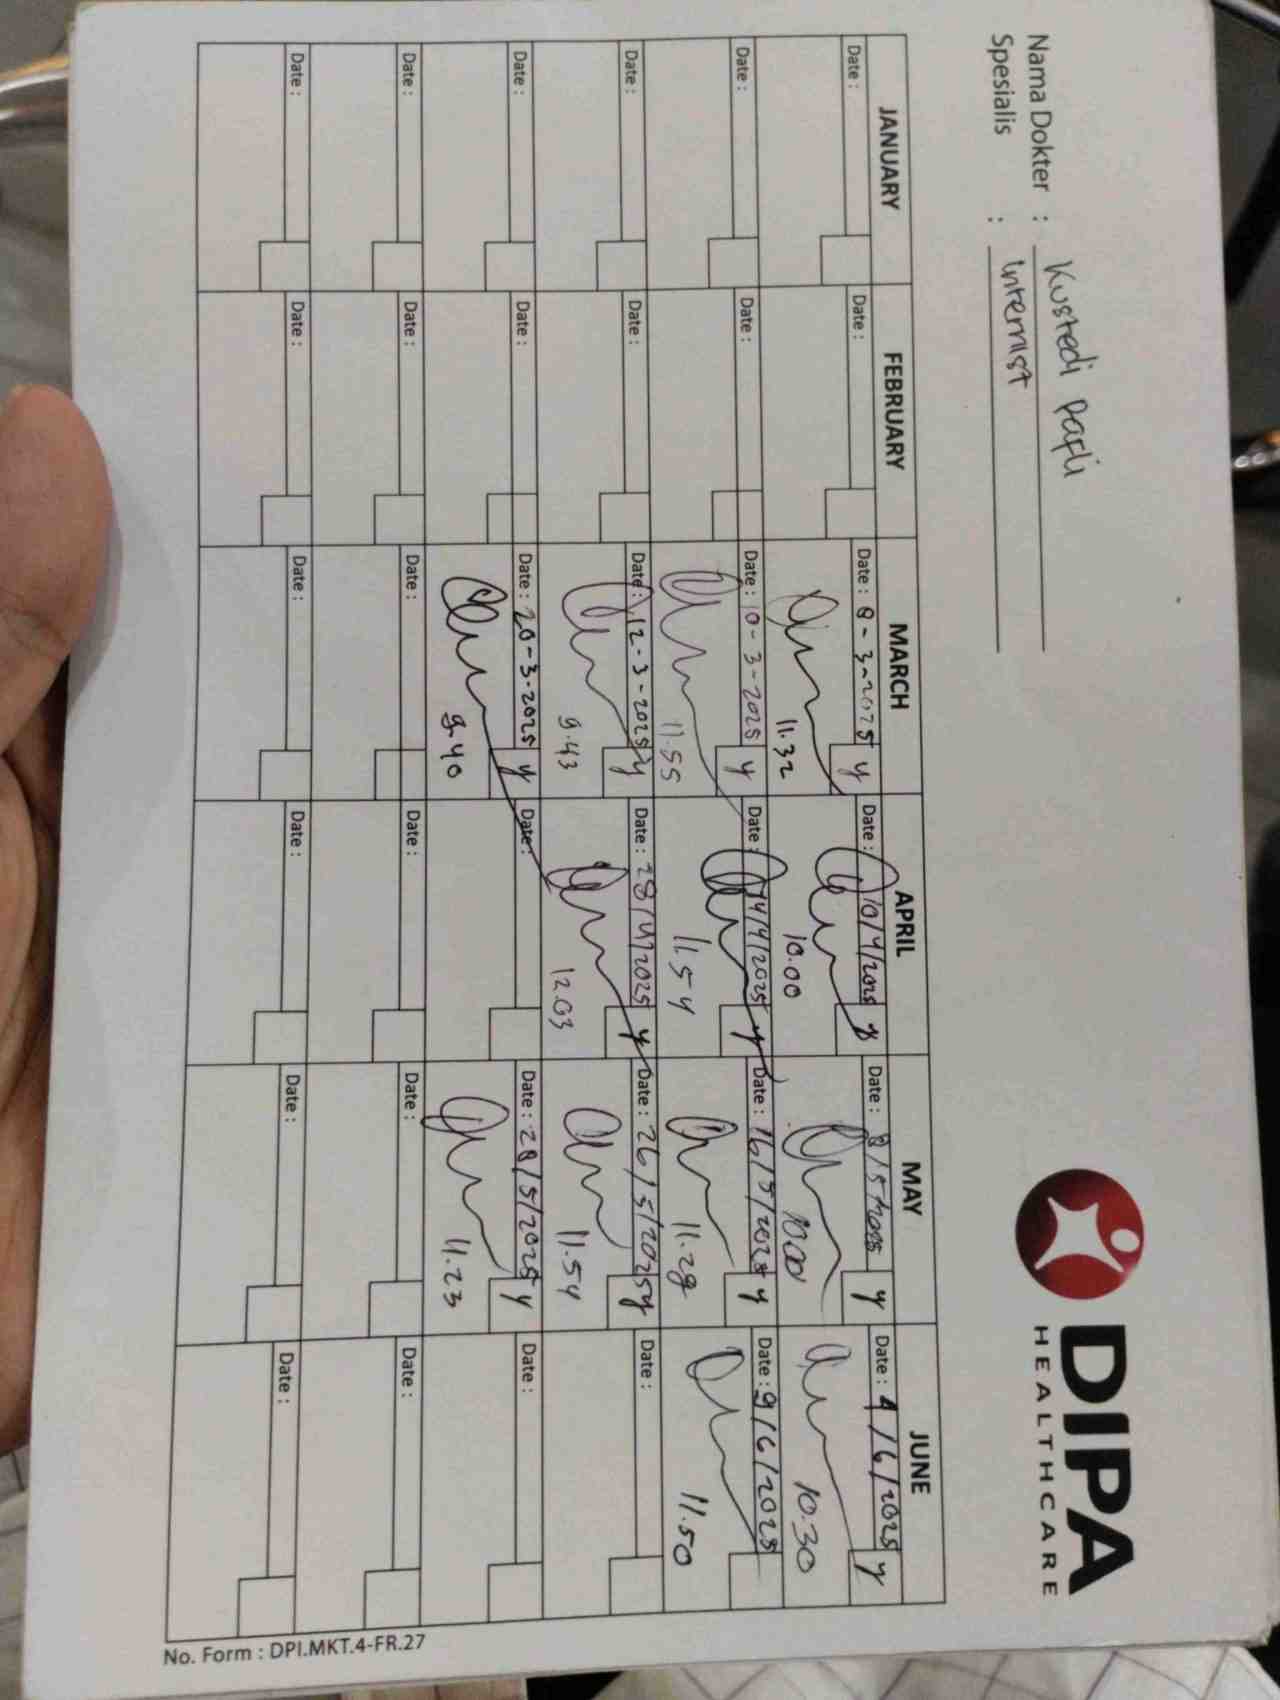 Nama Dokter : Kustedi
Spesialis : Internist
DIPA
HEALTHCARE
JANUARY FEBRUARY MARCH APRIL MAY JUNE
Date : Date : Date : 8-3-2025 y Date : 10/4/2025 y Date : 8/5/2025 y Date : 4/6/2025 y
11.32 10.00 10.00 10.30
Date : Date : Date : 10-3-2025 y Date : 14/4/2025 y Date : 16/5/2025 y Date : 9/6/2025
11.55 11.54 11.28 11.50
Date : Date : Date : 12-3-2025 y Date : 28/4/2025 y Date : 26/5/2025 y Date :
9.43 12.03 11.54
Date : Date : Date : 20-3-2025 y Date : Date : 28/5/2025 y Date :
9.40 11.23
Date : Date : Date : Date : Date : Date :
Date : Date : Date : Date : Date : Date :
No. Form : DPI.MKT.4-FR.27